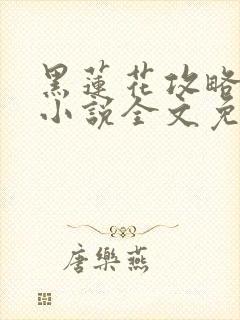 黑蓮花攻略
小說全文免
唐樂燕